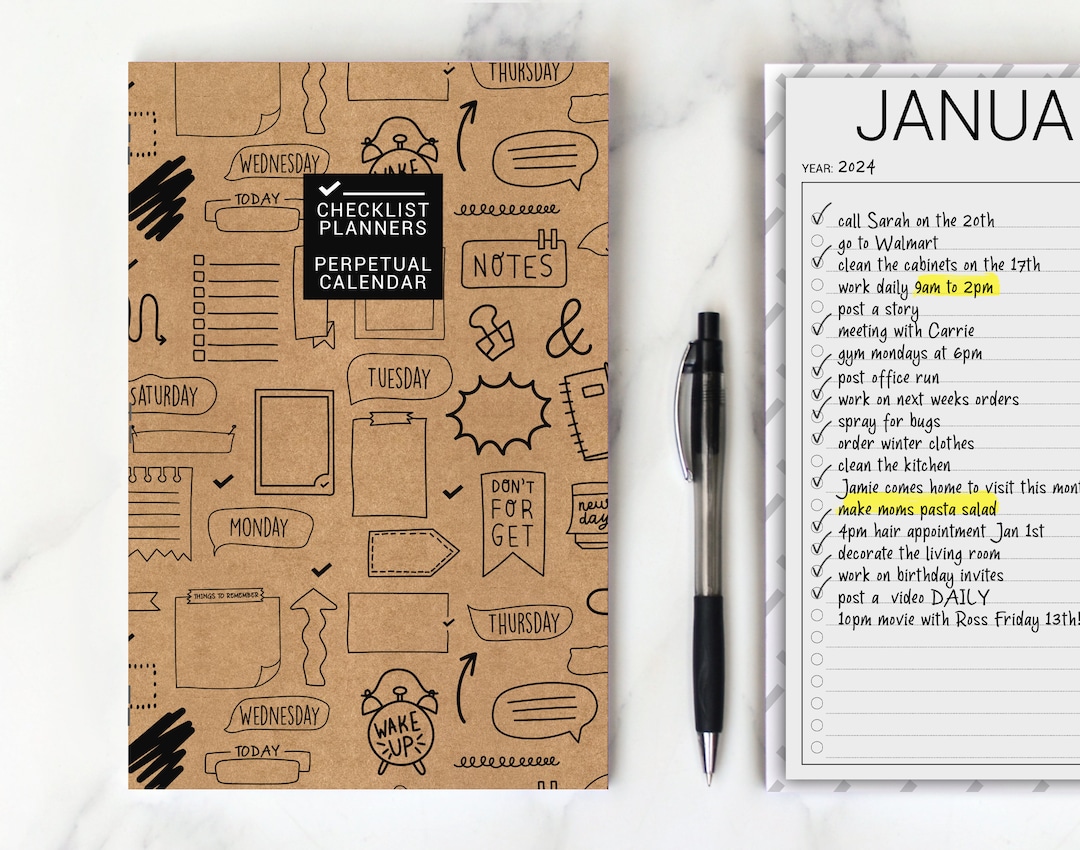 THURSDAY
WEDNESDAY
WAKE
TODAY
CHECKLIST
PLANNERS
PERPETUAL
CALENDAR
NOTES
&
TUESDAY
SATURDAY
DON'T
FOR
GET
new
day
MONDAY
THINGS TO REMEMBER
THURSDAY
WEDNESDAY
WAKE
UP
TODAY
JANUA
YEAR: 2024
call Sarah on the 20th
go to Walmart
clean the cabinets on the 17th
work daily 9am to 2pm
post a story
meeting with Carrie
gym mondays at 6pm
post office run
work on next weeks orders
spray for bugs
order winter clothes
clean the kitchen
Jamie comes home to visit this mont
make moms pasta salad
4pm hair appointment Jan 1st
decorate the living room
work on birthday invites
post a video DAILY
10pm movie with Ross Friday 13th!